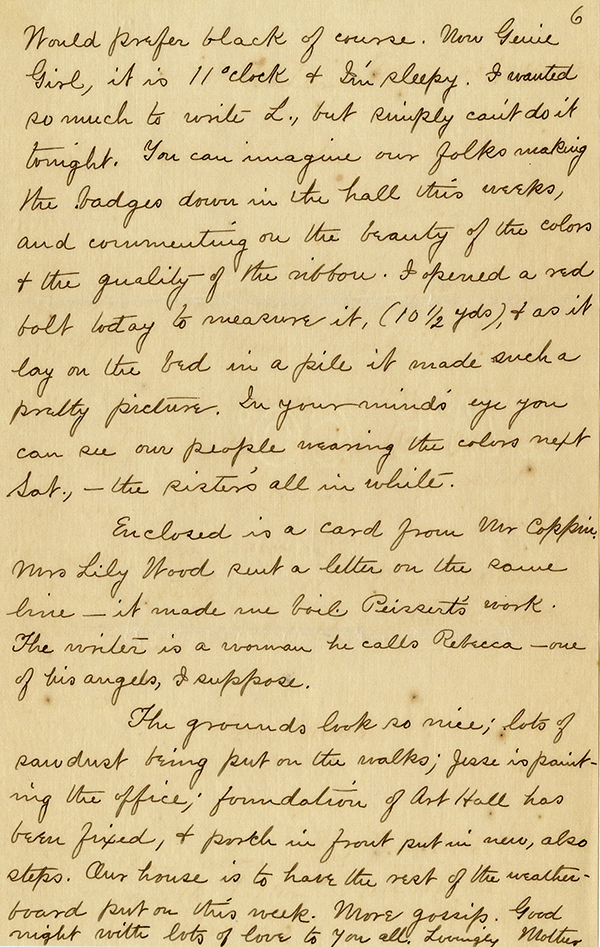 6
Would prefer black of course. Now Genie
Girl, it is 11 o'clock & I'm sleepy. I wanted
so much to write L., but simply can't do it
tonight. You can imagine our folks making
the badges down in the hall this weeks,
and commenting on the beauty of the colors
& the quality of the ribbon. I opened a red
bolt today to measure it, (10 1/2 yds), & as it
lay on the bed in a pile it made such a
pretty picture. In your mind's eye you
can see our people wearing the colors next
Sat., — the sister's all in white.
Enclosed is a card from Mr Coppin.
Mrs Lily Wood sent a letter on the same
line — it made me boil. Peissert's work.
The writer is a woman he calls Rebecca — one
of his angels, I suppose.
The grounds look so nice; lots of
sawdust being put on the walks; Jesse is paint-
ing the office; foundation of Art Hall has
been fixed, & porch in front put in new, also
steps. Our house is to have the rest of the weather-
board put on this week. More gossip. Good
night with lots of love to you all. Lovingly Mother